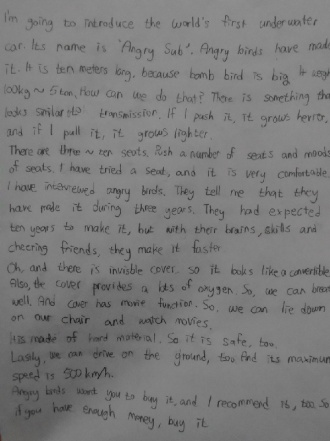 I'm going to introduce the world's first underwater
car. Its name is 'Angry Sub'. Angry birds have made
it. It is ten meters long, because bomb bird is big. It weigh
100kg ~ 5 ton. How can we do that? There is something tha
looks similar to transmission. If I push it, it grows hevier,
and if I pull it, it grows lighter.
There are three ~ ten seats. Push a number of seats and moods
of seats. I have tried a seat, and it is very comfortable.
I have interviewed angry birds. They tell me that they
have made it during three years. They had expected
ten years to make it, but with their brains, skills and
cheering friends, they make it faster.
Oh, and there is invisble cover. so it looks like a convertible
Also, the cover provides a lots of oxygen. So, we can breat
well. And cover has movie function. So, we can lie down
on our chair and watch movies.
It is made of hard material. So it is safe, too.
Lasly, we can drive on the ground, too. And its maximum
speed is 500 km/h.
Angry birds want you to buy it, and I recommend it, too. So
if you have enough money, buy it.